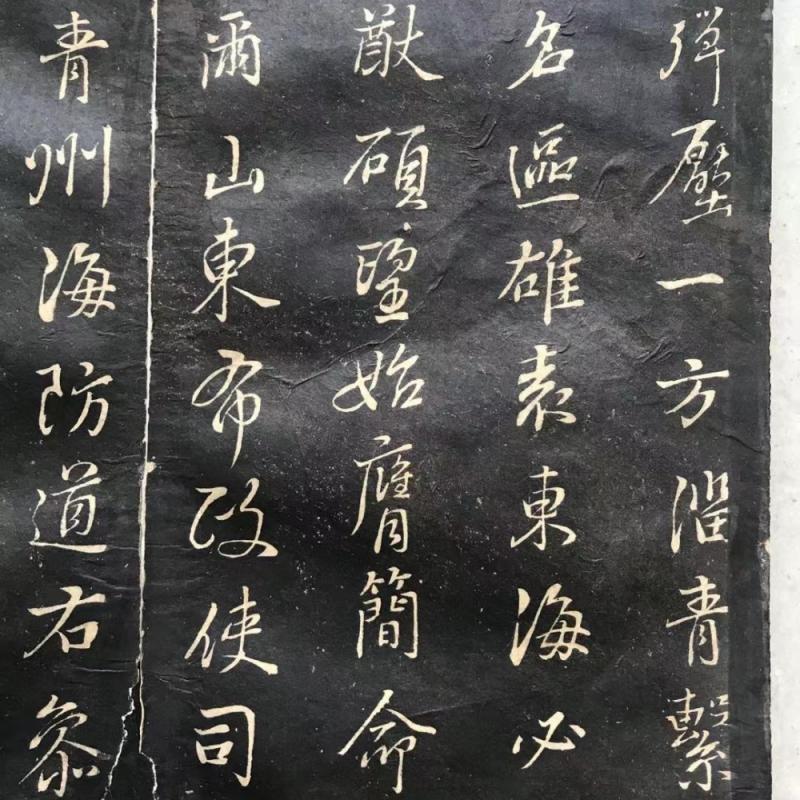 彈壓一方淄青繫
名區雄表東海必
猷碩望始膺簡命
爾山東布政使司
青州海防道右參